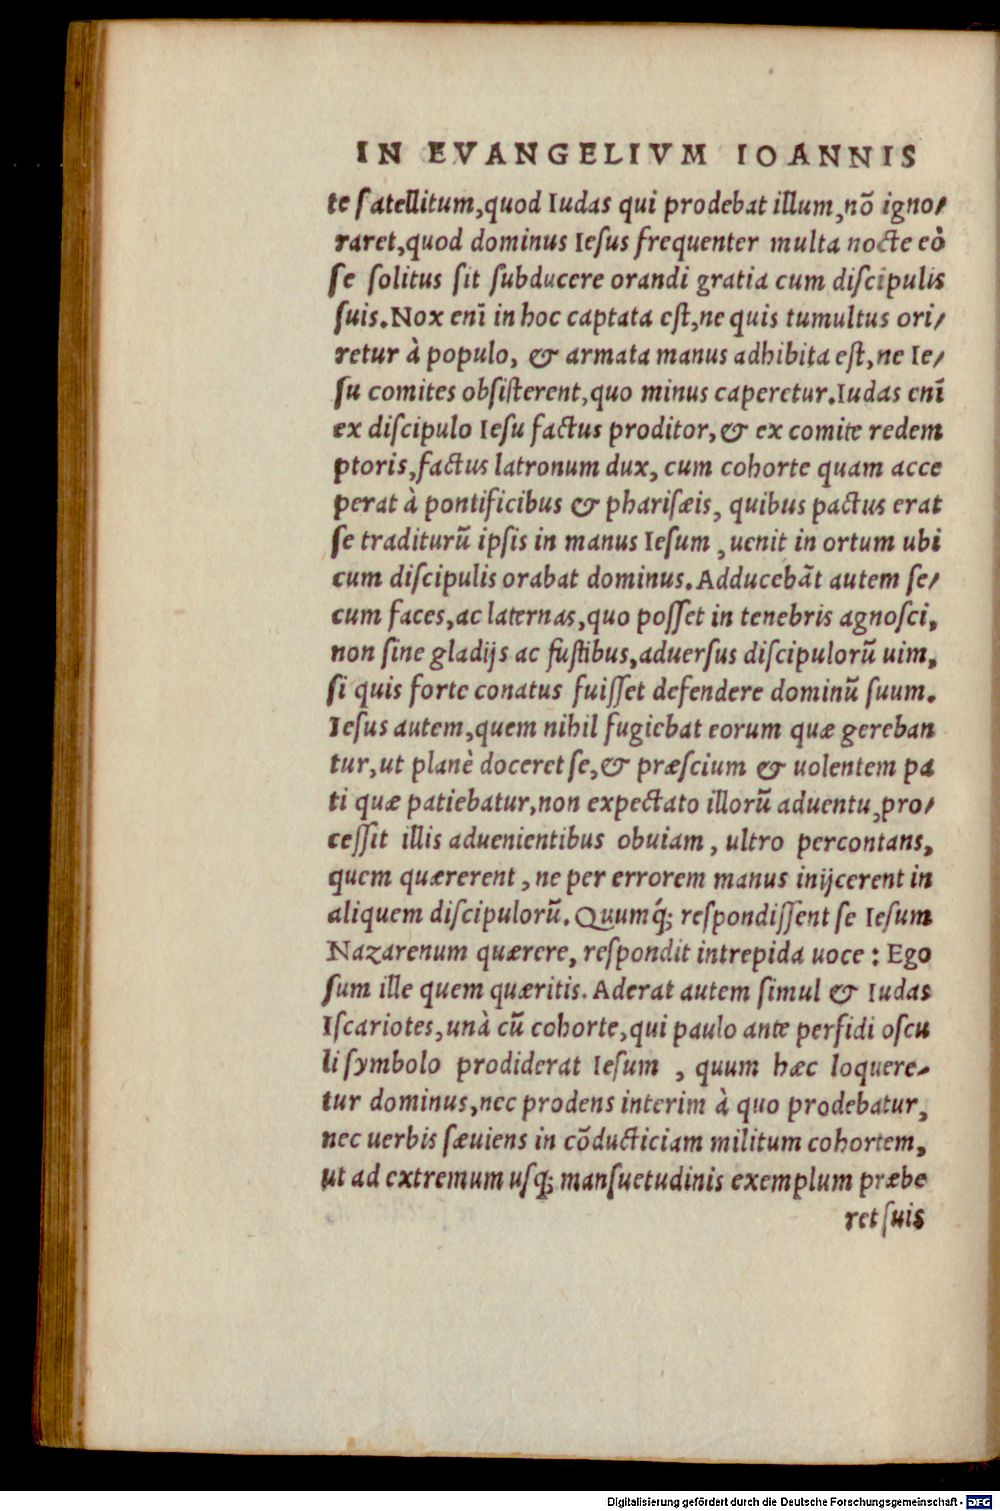 IN EVANGELIVM IOANNIS
te satellitum,quod Iudas qui prodebat illum,nō igno/
raret,quod dominus Iesus frequenter multa nocte eò
se solitus sit subducere orandi gratia cum discipulis
suis.Nox enī in hoc captata est,ne quis tumultus ori/
retur à populo, & armata manus adhibita est,ne Ie/
su comites obsisterent,quo minus caperetur.Iudas enī
ex discipulo Iesu factus proditor,& ex comite redem
ptoris,factus latronum dux, cum cohorte quam acce
perat à pontificibus & pharisæis, quibus pactus erat
se traditurū ipsis in manus Iesum , uenit in ortum ubi
cum discipulis orabat dominus.Adducebāt autem se/
cum faces,ac laternas,quo posset in tenebris agnosci,
non sine gladijs ac fustibus,aduersus discipulorū uim,
si quis forte conatus fuisset defendere dominū suum.
Iesus autem,quem nihil fugiebat eorum quæ gereban
tur,ut planè doceret se,& præscium & uolentem pa
ti quæ patiebatur,non expectato illorū aduentu,pro/
cessit illis aduenientibus obuiam , ultro percontans,
quem quærerent , ne per errorem manus inijcerent in
aliquem discipulorū. Quumq́; respondissent se Iesum
Nazarenum quærere, respondit intrepida uoce : Ego
sum ille quem quæritis. Aderat autem simul & Iudas
Iscariotes,unà cū cohorte,qui paulo ante perfidi oscu
li symbolo prodiderat Iesum , quum hæc loquere-
tur dominus,nec prodens interim à quo prodebatur,
nec uerbis sæuiens in cōducticiam militum cohortem,
ut ad extremum usq; mansuetudinis exemplum præbe
ret suis
Digitalisierung gefördert durch die Deutsche Forschungsgemeinschaft - DFG